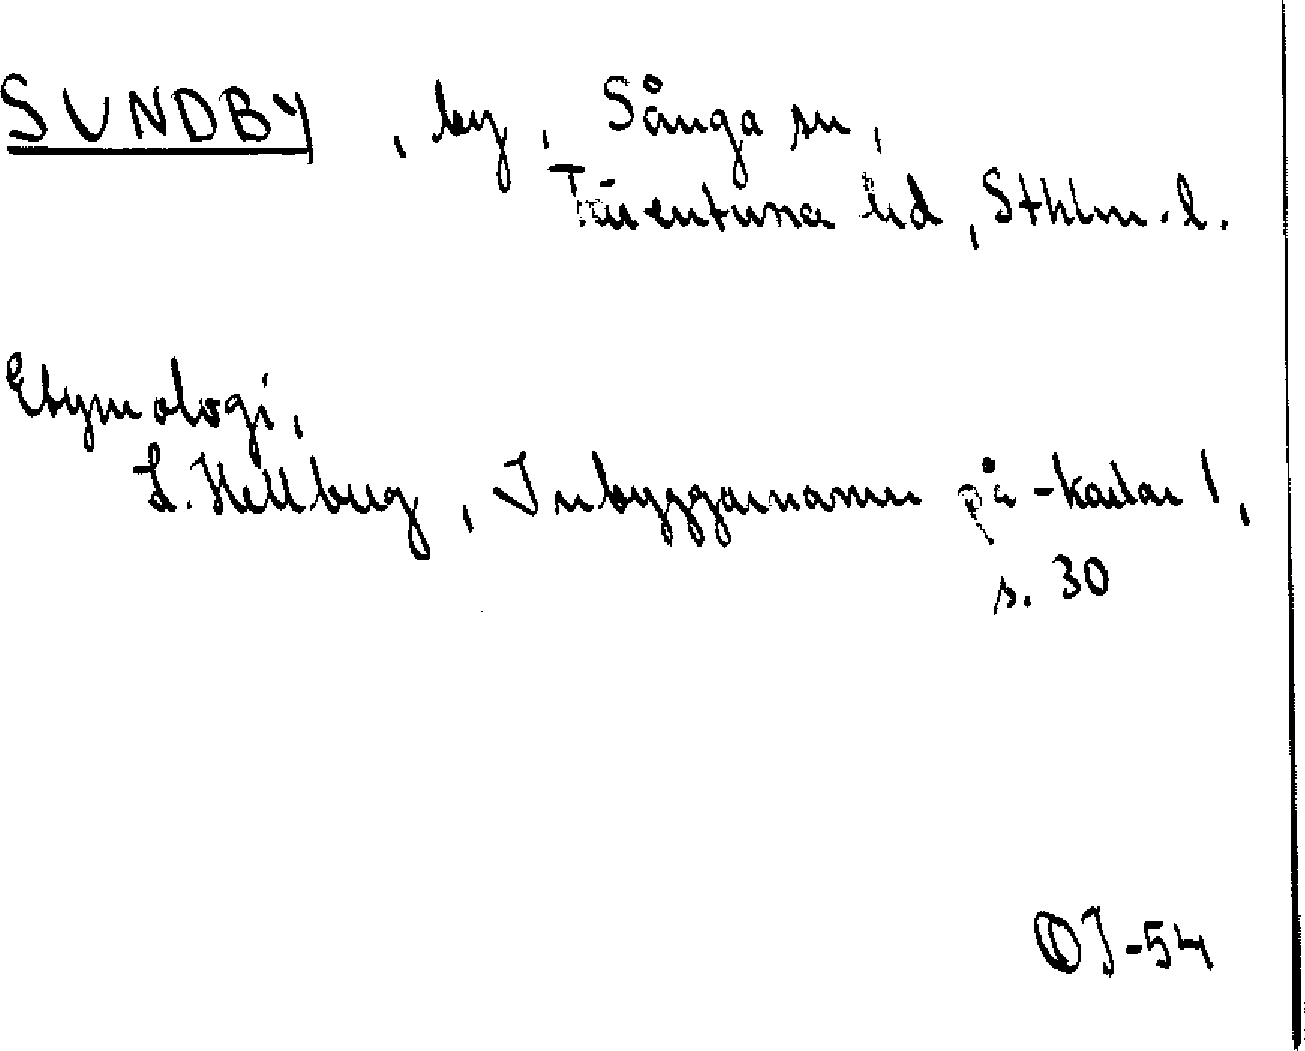 SUNDBY, by, Sånga sn,
Färentuna hd, Sthlm. l.
Etymologi,
L. Hellberg, Inbyggarnamn på -karlar 1,
s. 30
OJ-54